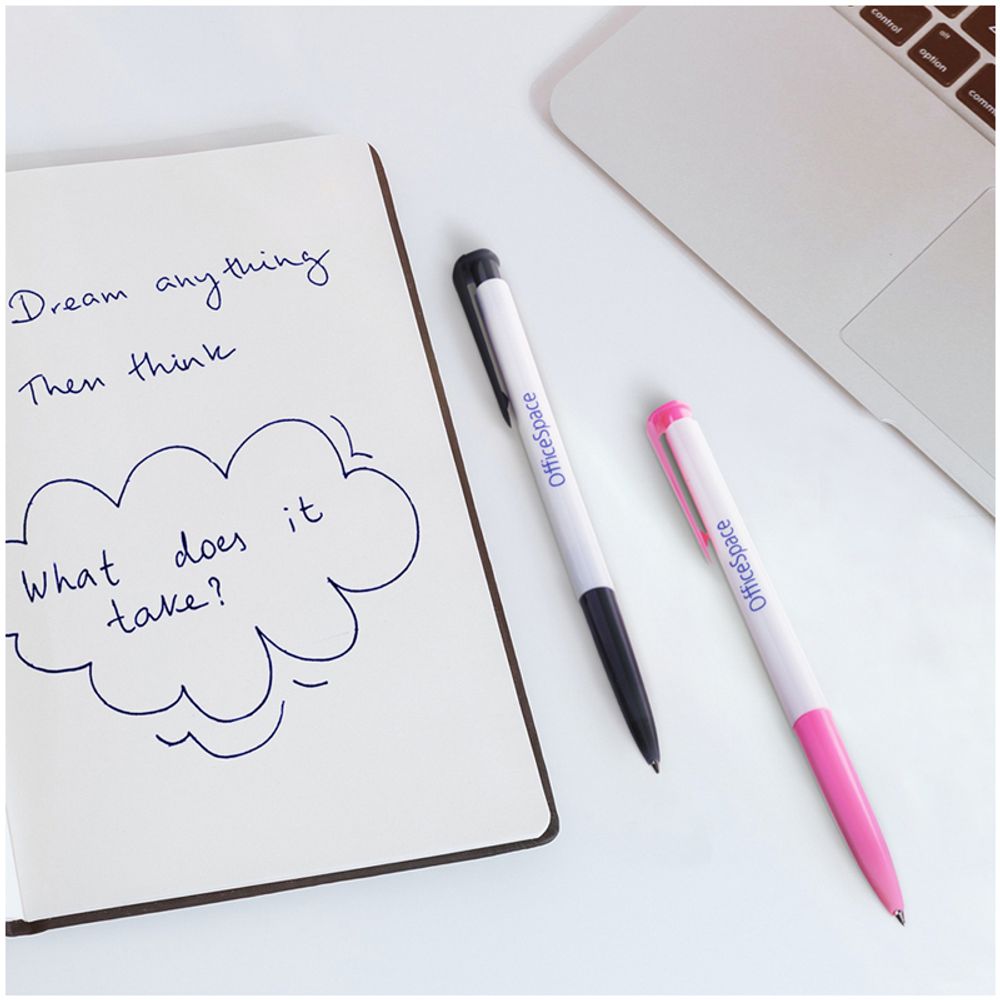 Dream anything
Then think
What does it
take?
OfficeSpace
OfficeSpace
control
alt
option